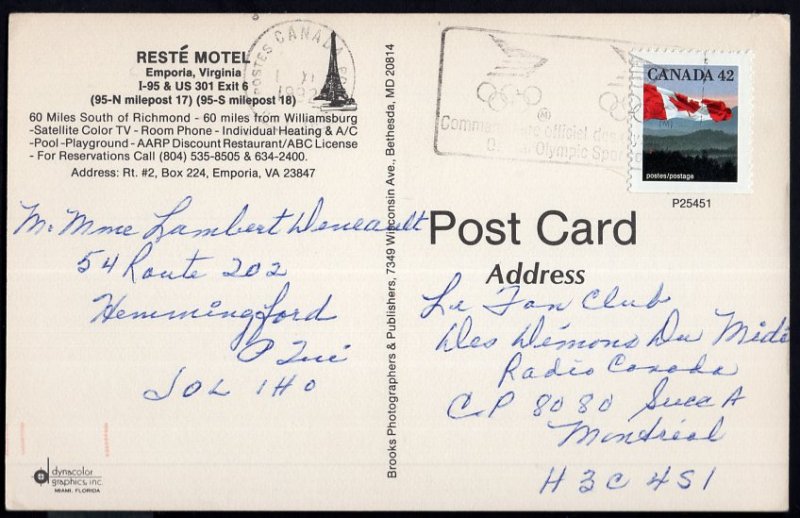 RESTÉ MOTEL
Emporia, Virginia
I-95 & US 301 Exit 6
(95-N milepost 17) (95-S milepost 18)
60 Miles South of Richmond - 60 miles from Williamsburg
-Satellite Color TV - Room Phone - Individual Heating & A/C
-Pool -Playground - AARP Discount Restaurant/ABC License
- For Reservations Call (804) 535-8505 & 634-2400.
Address: Rt. #2, Box 224, Emporia, VA 23847
M. Mme Lambert Deneault
54 Route 202
Hemmingford
P Qué
J0L 1H0
dynacolor
graphics, inc.
MIAMI, FLORIDA
Brooks Photographers & Publishers, 7349 Wisconsin Ave., Bethesda, MD 20814
POSTES CANADA
XI
Commanditaire officiel des
Olympic
CANADA 42
postes/postage
P25451
Post Card
Address
Le Fan Club
Des Démons Du Midi
Radio Canada
C.P 8080 Succ A
Montréal
H3C 4S1